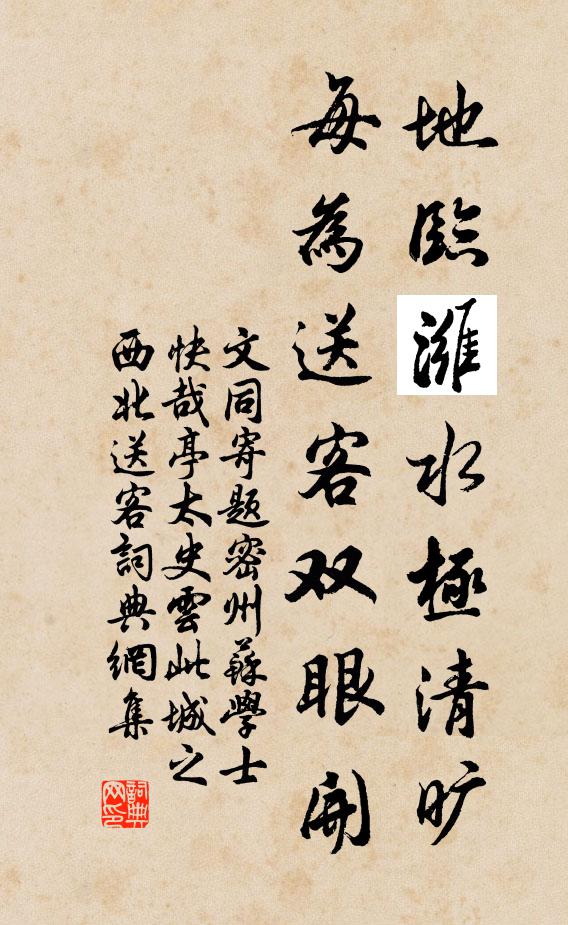 地臨濰水極清旷
每為送客双眼開
文同寄題密州蘇學士
快哉亭太史雲此城之
西北送客詞典網集
詞典网印